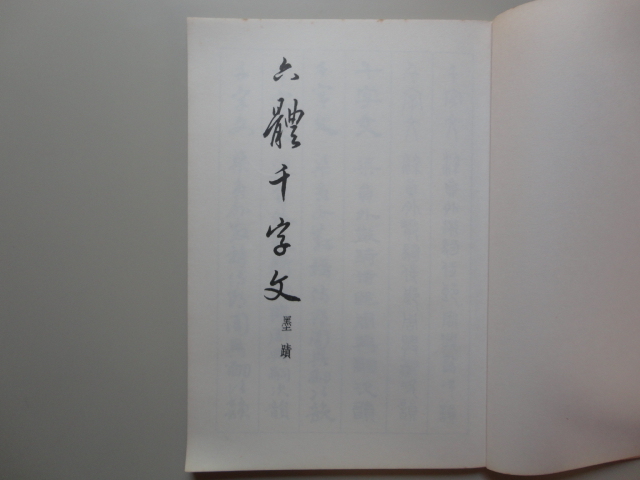 六體千字文
墨蹟